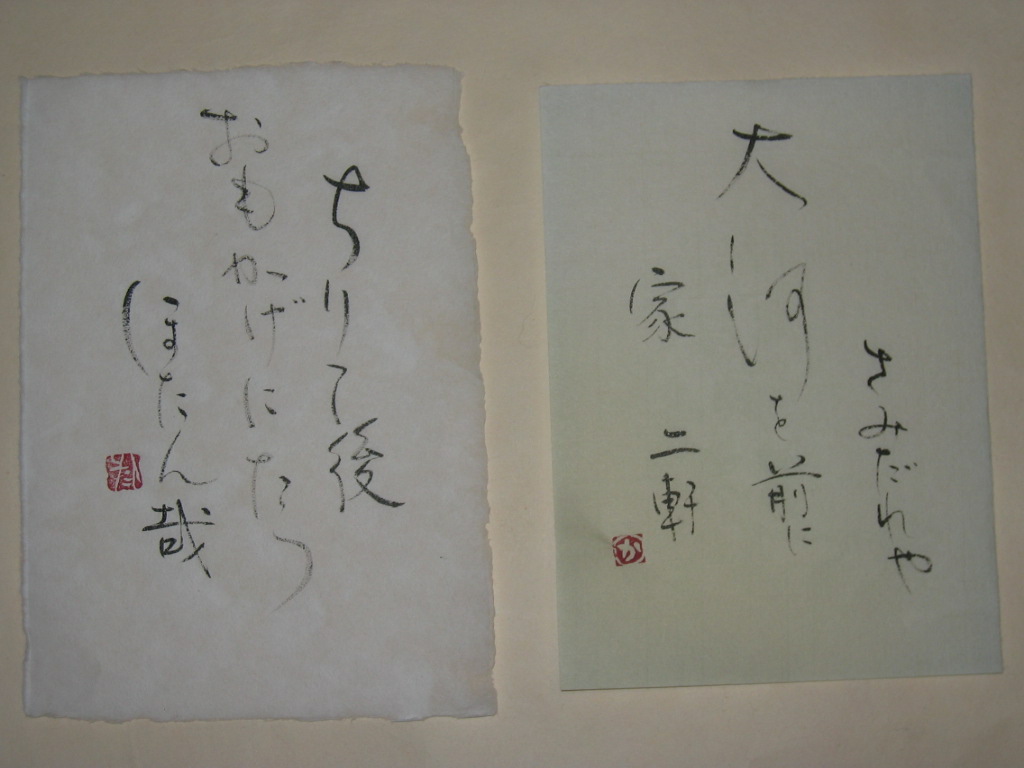 さみだれや
大河を前に
家二軒
か
ちりて後
おもかげにたつ
ほたん哉